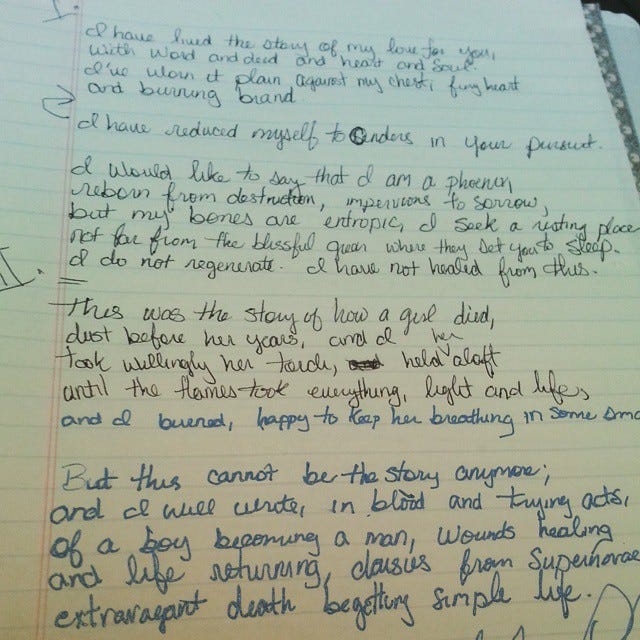 I.
I have lived the story of my love for you,
with word and deed and heart and soul.
I've worn it plain against my chest, fiery heart
and burning brand
I have reduced myself to Cinders in your pursuit.
I would like to say that I am a phoenix,
reborn from destruction, impervious to sorrow,
but my bones are entropic, I seek a resting place
not far from the blissful green where they set you to sleep.
I do not regenerate. I have not healed from this.
II.
This was the story of how a girl died,
dust before her years, and I
took willingly her torch, held her aloft
until the flames took everything, light and life,
and I burned, happy to keep her breathing in some
But this cannot be the story anymore;
and I will write, in blood and trying acts,
of a boy becoming a man, wounds healing
and life returning, daisies from Supernovae
extravagant death begetting simple life.